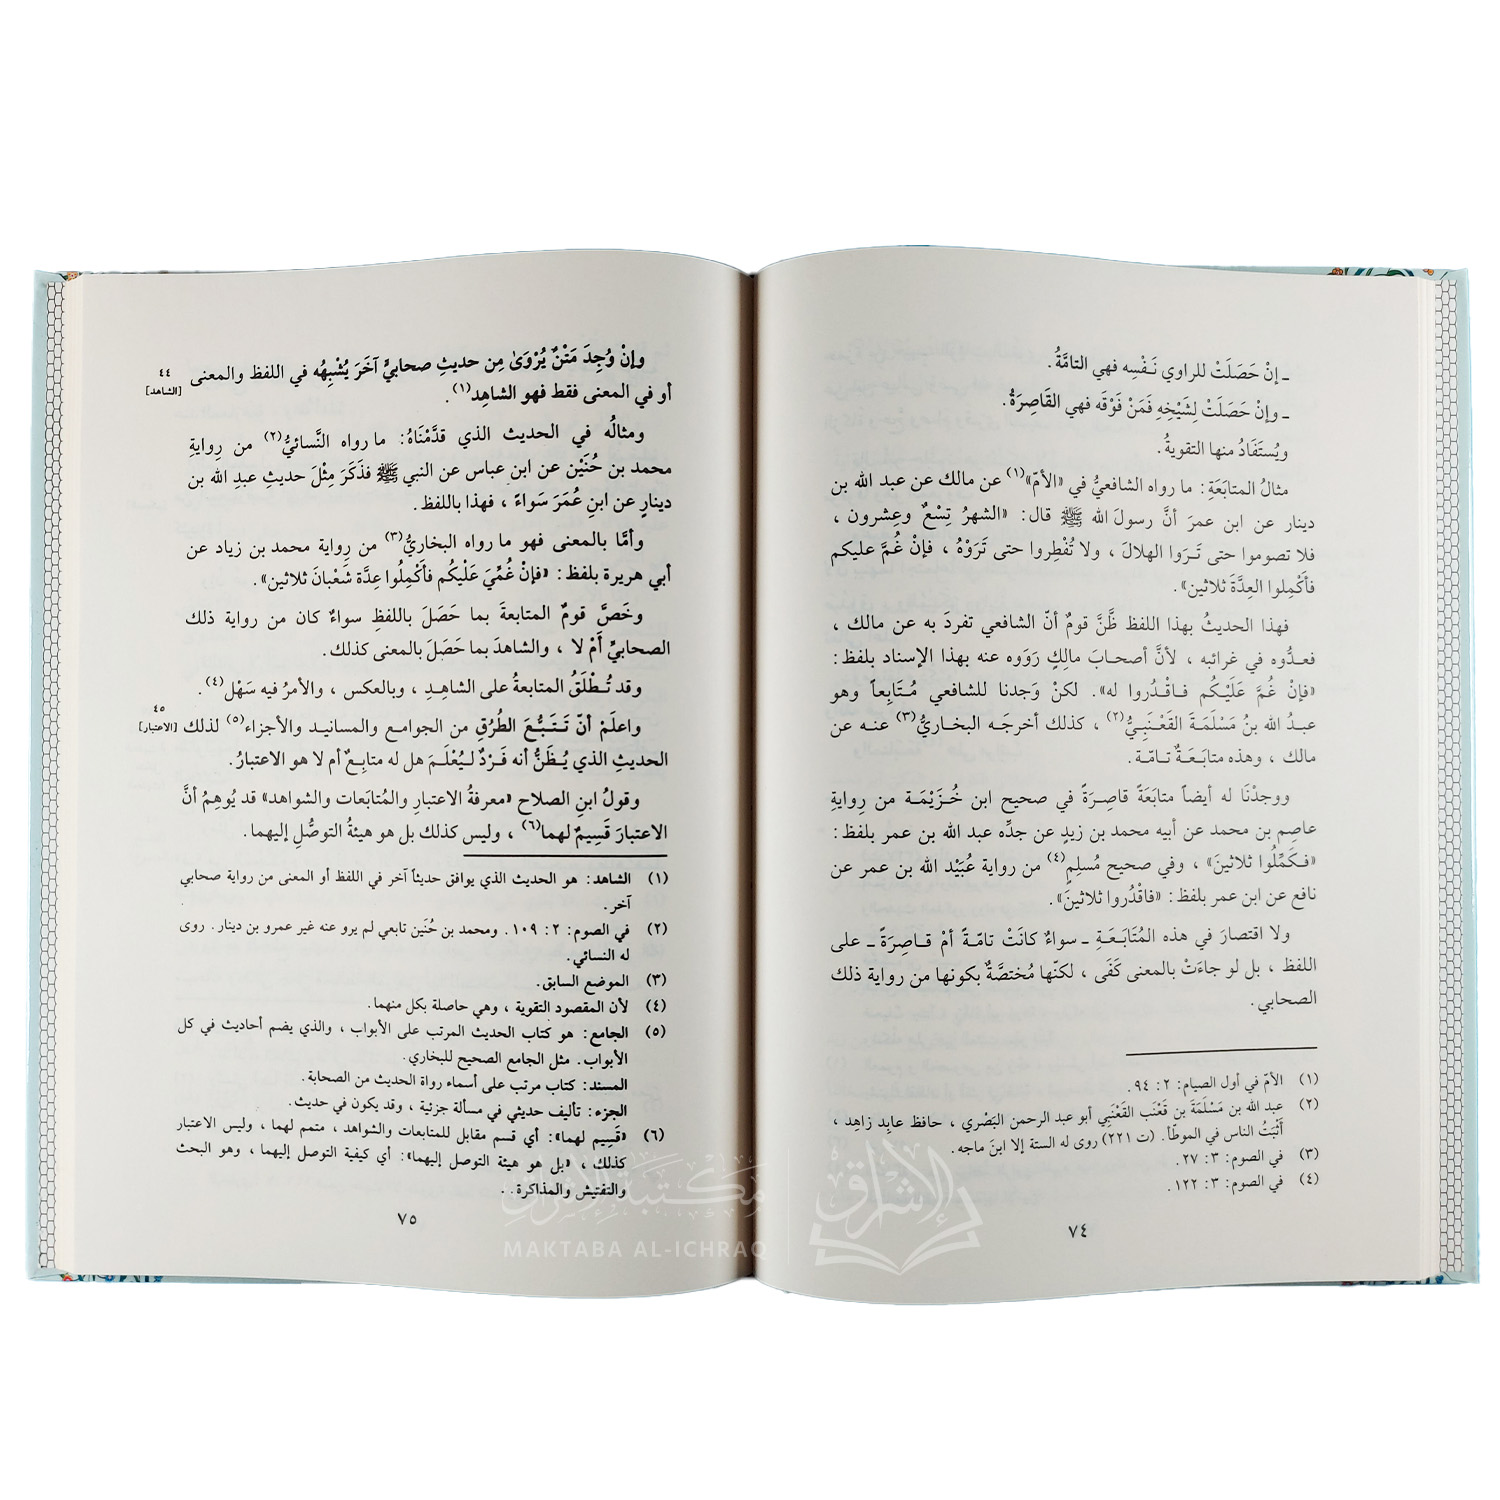 ـ إنْ حَصَلَتْ للراوي نَـفْسِه فهي التامَّةُ.
ـ وإنْ حَصَلَتْ لِشَيْخِهِ فَمَنْ فَوْقَه فهي القَاصِرَةُ.
ويُستَفَادُ منها التقويةُ.
مثالُ المتابَعَةِ: ما رواه الشافعيُّ في «الأمّ»(١) عن مالك عن عبد الله بن
دينار عن ابن عمرَ أنَّ رسولَ الله ﷺ قال: «الشهرُ تِسْعٌ وعِشرون ،
فلا تصوموا حتى تَرَوا الهلالَ ، ولا تُفْطِروا حتى تَرَوْهُ ، فإنْ غُمَّ عليكم
فأَكْمِلوا العِدَّةَ ثلاثين».
فهذا الحديثُ بهذا اللفظ ظَنَّ قومٌ أنّ الشافعي تفردَ به عن مالك ،
فعـدُّوه في غرائبه ، لأنَّ أصحـابَ مالِكٍ رَوَوه عنه بهذا الإسناد بلفظ:
«فإنْ غُمَّ عَلَيْـكُم فـاقْـدُروا له». لكنْ وَجدنا للشافعي مُتَـابِعاً وهو
عبـدُ الله بنُ مَسْلَمَةَ القَعْنَبِـيُّ(٢) ، كذلك أخرجَـه البخـاريُّ(٣) عنـه عن
مالك ، وهذه متابَـعَـةٌ تامّـة.
ووجدْنَا له أيضاً متابَعَةً قاصِـرَةً في صحيح ابن خُـزَيْمَـة من روايةِ
عاصِم بن محمد عن أبيه محمد بن زيدٍ عن جدِّه عبد الله بن عمر بلفظ:
«فـكَمِّلُوا ثلاثينَ» ، وفي صحيح مُسلِمٍ(٤) من رواية عُبَيْد الله بن عمر عن
نافع عن ابن عمر بلفظ: «فاقْدُروا ثلاثينَ».
ولا اقتصارَ في هذه المُتَابَعَـةِ ـ سواءٌ كانَتْ تامّـةً أمْ قـاصِرَةً ـ على
اللفظ ، بل لو جاءَتْ بالمعنى كَفَى ، لكنّها مُختصَّةٌ بكونها من رواية ذلك
الصحابي.
(١) الأمّ في أول الصيام: ٢: ٩٤.
(٢) عبد الله بن مَسْلَمَةَ بن قَعْنَب القَعْنَبِي أبو عبد الرحمن البَصْري ، حافظ عابِد زاهِد ،
أَثْبَتُ الناس في الموطّأ. (ت ٢٢١) روى له الستة إلا ابنَ ماجه.
(٣) في الصوم: ٣: ٢٧.
(٤) في الصوم: ٣: ١٢٢.
٧٤
وإنْ وُجِدَ مَتْنٌ يُرْوَىٰ مِن حديثِ صحابيٍّ آخَرَ يُشْبِهُه في اللفظ والمعنى
٤٤
[الشاهد]
أو في المعنى فقط فهو الشاهِد(١).
ومثالُه في الحديث الذي قدَّمْنَاهُ: ما رواه النَّسائيُّ(٢) من رِوايةِ
محمد بن حُنَيْن عن ابن عباس عن النبي ﷺ فذَكَرَ مِثْلَ حديثِ عبدِ الله بن
دينارٍ عن ابنِ عُمَرَ سَواءً ، فهذا باللفظ.
وأمَّا بالمعنى فهو ما رواه البخاريُّ(٣) من رِواية محمد بن زياد عن
أبي هريرة بلفظ: «فإنْ غُمِّيَ عَلَيْكُم فأَكْمِلُوا عِدَّة شَعْبانَ ثلاثين».
وخَصَّ قومٌ المتابعةَ بما حَصَلَ باللفظِ سواءٌ كان من رواية ذلك
الصحابيِّ أَمْ لا ، والشاهدَ بما حَصَلَ بالمعنى كذلك.
وقد تُـطْلَقُ المتابعةُ على الشاهِـدِ ، وبالعكس ، والأمرُ فيه سَهْل(٤).
واعلَمْ أنّ تَـتَبُّـعَ الطُرُقِ من الجوامـع والمسانيـد والأجزاء(٥) لذلك
٤٥
[الاعتبار]
الحديثِ الذي يُـظَنُّ أنه فَـرْدٌ لـيُعْلَـمَ هل له متابِـعٌ أم لا هو الاعتبارُ.
وقولُ ابنِ الصلاح «معرفةُ الاعتبار والمُتابَعات والشواهد» قد يُوهِمُ أنَّ
الاعتبارَ قَسِيمٌ لهما(٦) ، وليس كذلك بل هو هيئةُ التوصُّلِ إليهما.
(١) الشاهد: هو الحديث الذي يوافق حديثاً آخر في اللفظ أو المعنى من رواية صحابي
آخر.
(٢) في الصوم: ٢: ١٠٩. ومحمد بن حُنَين تابعي لم يرو عنه غير عمرو بن دينار. روى
له النسائي.
(٣) الموضع السابق.
(٤) لأن المقصود التقوية ، وهي حاصلة بكل منهما.
(٥) الجامع: هو كتاب الحديث المرتب على الأبواب ، والذي يضم أحاديث في كل
الأبواب. مثل الجامع الصحيح للبخاري.
المسند: كتاب مرتب على أسماء رواة الحديث من الصحابة.
الجزء: تأليف حديثي في مسألة جزئية ، وقد يكون في حديث.
(٦) «قَسِيم لهما»: أي قسم مقابل للمتابعات والشواهد ، متمم لهما ، وليس الاعتبار
كذلك ، «بل هو هيئة التوصل إليهما»: أي كيفية التوصل إليهما ، وهو البحث
والتفتيش والمذاكرة..
٧٥
مكتبة الإشراق
MAKTABA AL-ICHRAQ
الإشراق